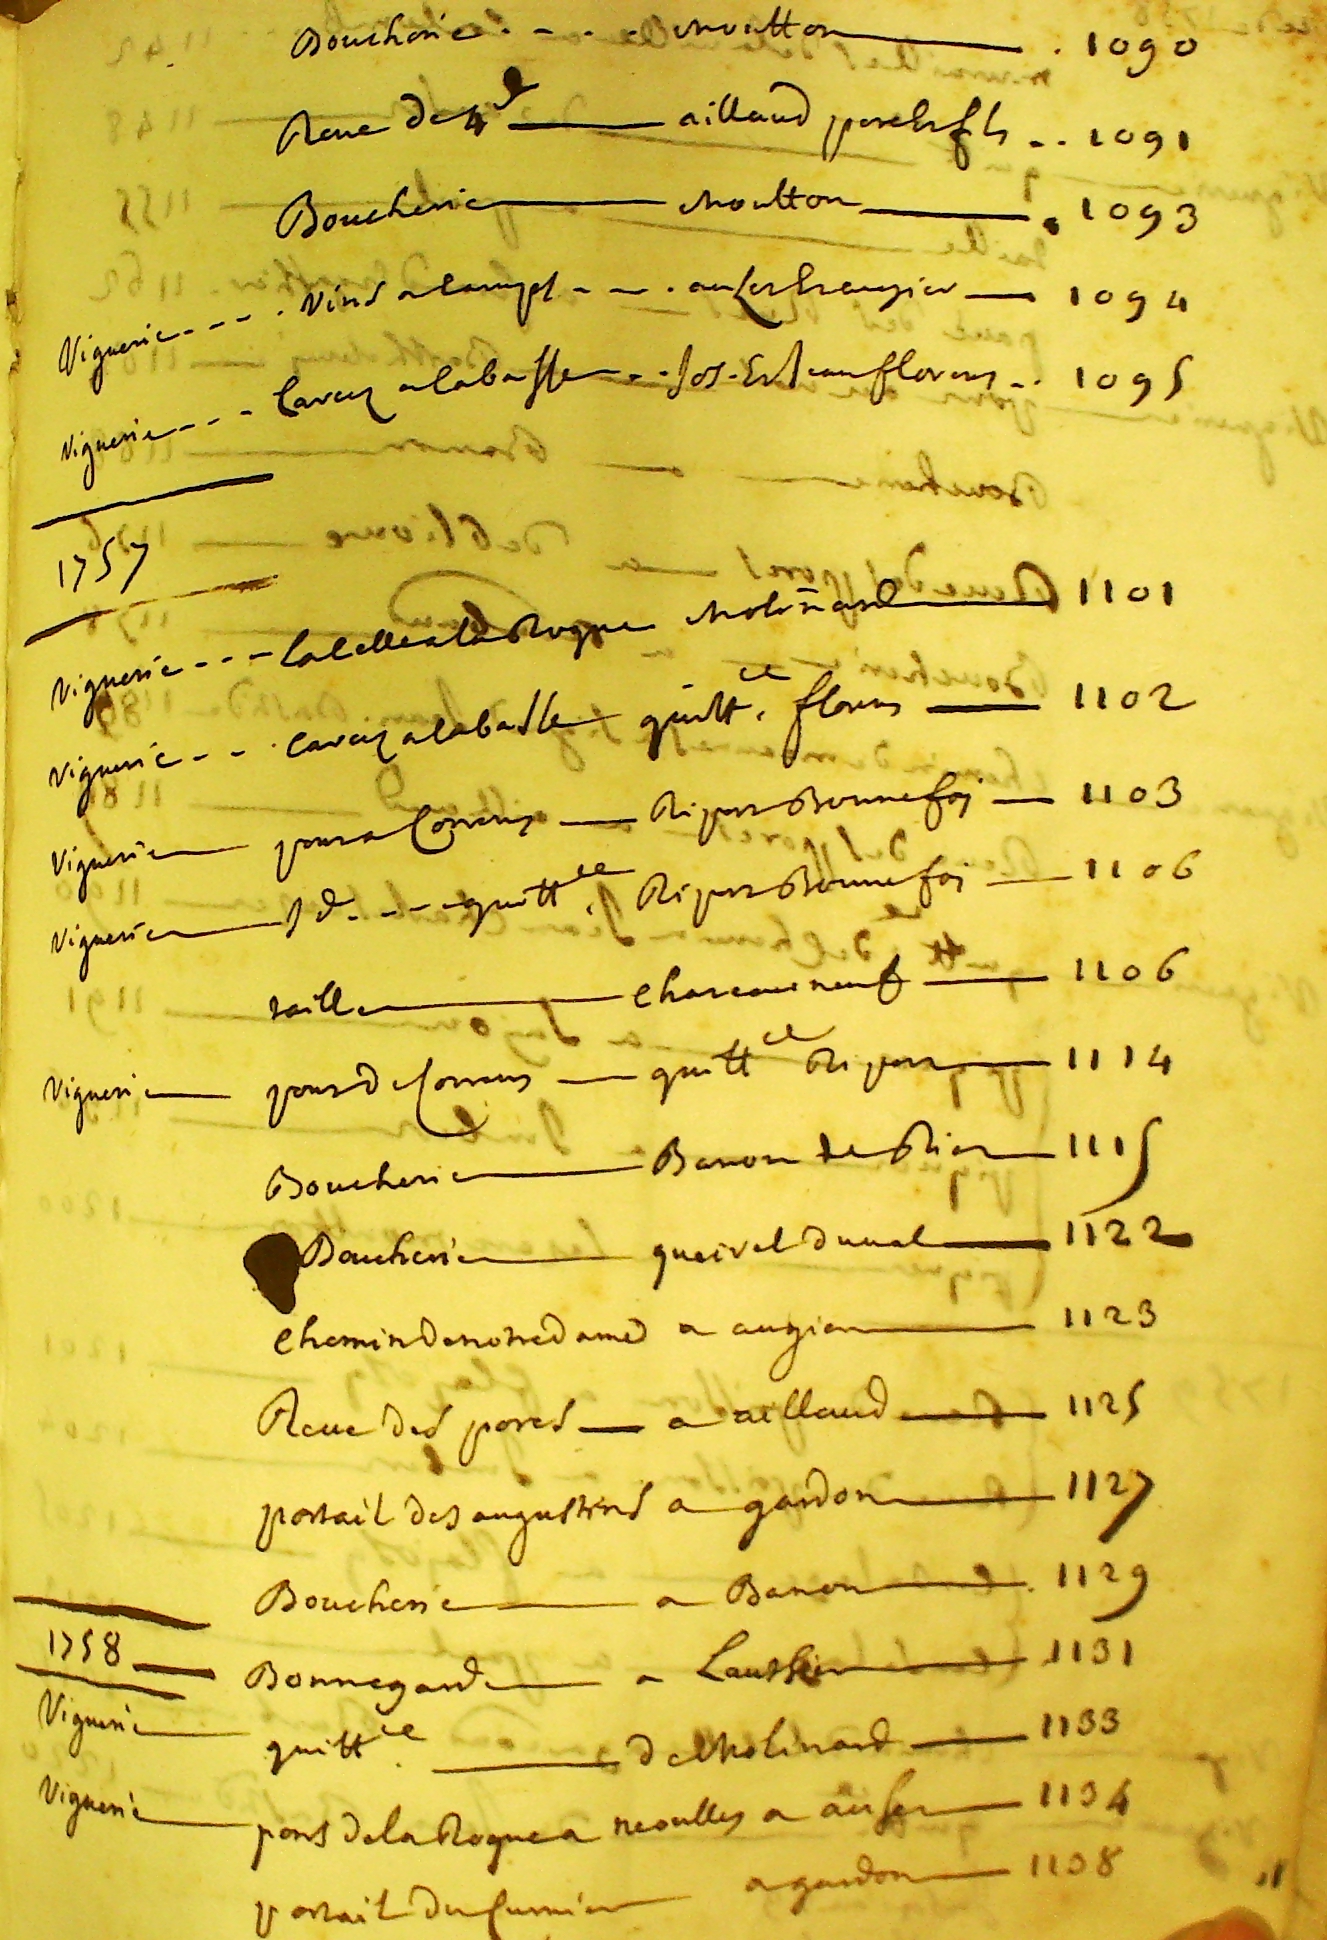 Boucherie . - . . Moutton . 1090
Reue de 4e aillaud pere & fils .. 1091
Boucherie Moutton . 1093
Viguerie - - - . Vins a Camps - - . augier 1094
Viguerie - - - Carces a la basse - . Jos. Florens .. 1095
1757
Viguerie - - - La Celle a la Roque Molinard 1101
Viguerie - - . Carces a la basse quittce. florens 1102
Viguerie pour a Correns Ripert Bonnefoj 1103
Viguerie Jd. - - - quittce. Ripert Bonnefoj 1106
taille Chateauneuf 1106
Viguerie pour de Correns quittce Ripert 1114
Boucherie Banon 1115
Boucherie queirel duual 1122
Chemin de notre dame a augier 1123
Reue des porcs a aillaud 1125
portail des augustins a gardon 1127
Boucherie a Banon 1129
1758
Bonnegarde a Lautier 1131
Viguerie quittce. de Molinard 1133
Viguerie pont de la Roque a neoulles a 1134
portail du a gardon 1138